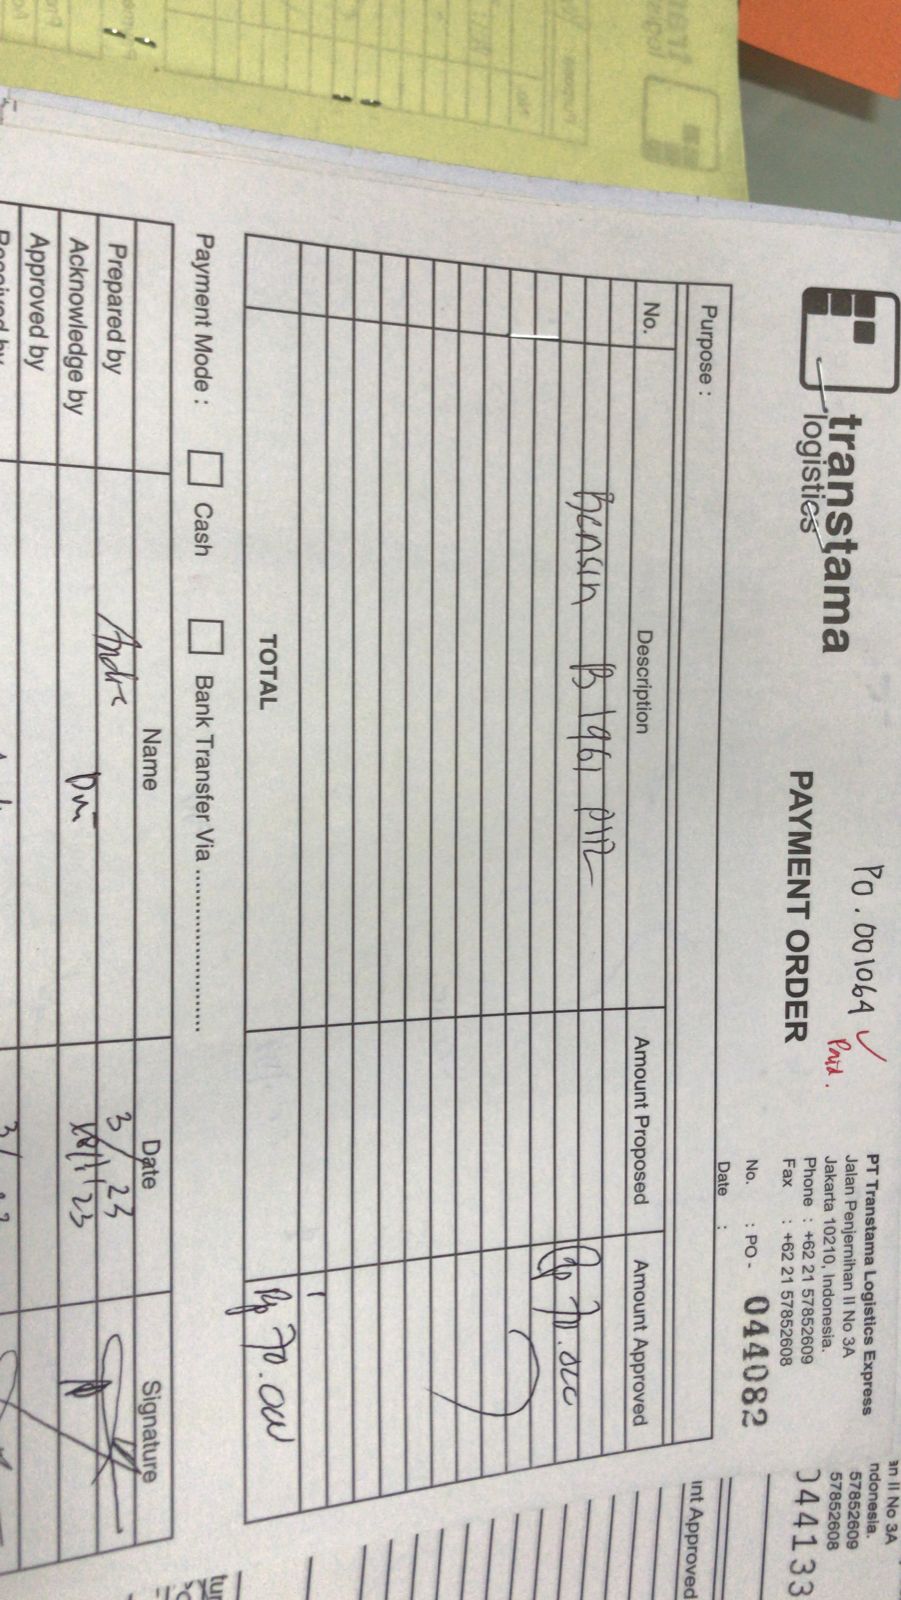 transtama
logistics
PO. 001064 ✓
Paid.
PAYMENT ORDER
PT Transtama Logistics Express
Jalan Penjernihan II No 3A
Jakarta 10210, Indonesia.
Phone : +62 21 57852609
Fax : +62 21 57852608
No. : PO - 044082
Date :
Purpose :
No. Description Amount Proposed Amount Approved
Bensin B 1961 Rp 70.000
TOTAL Rp 70.000
Payment Mode : Cash Bank Transfer Via ..........................
Name Date Signature
Prepared by Andre 3/ 23
Acknowledge by /1/23
Approved by
an II No 3A
ndonesia.
57852609
57852608
044133
int Approved